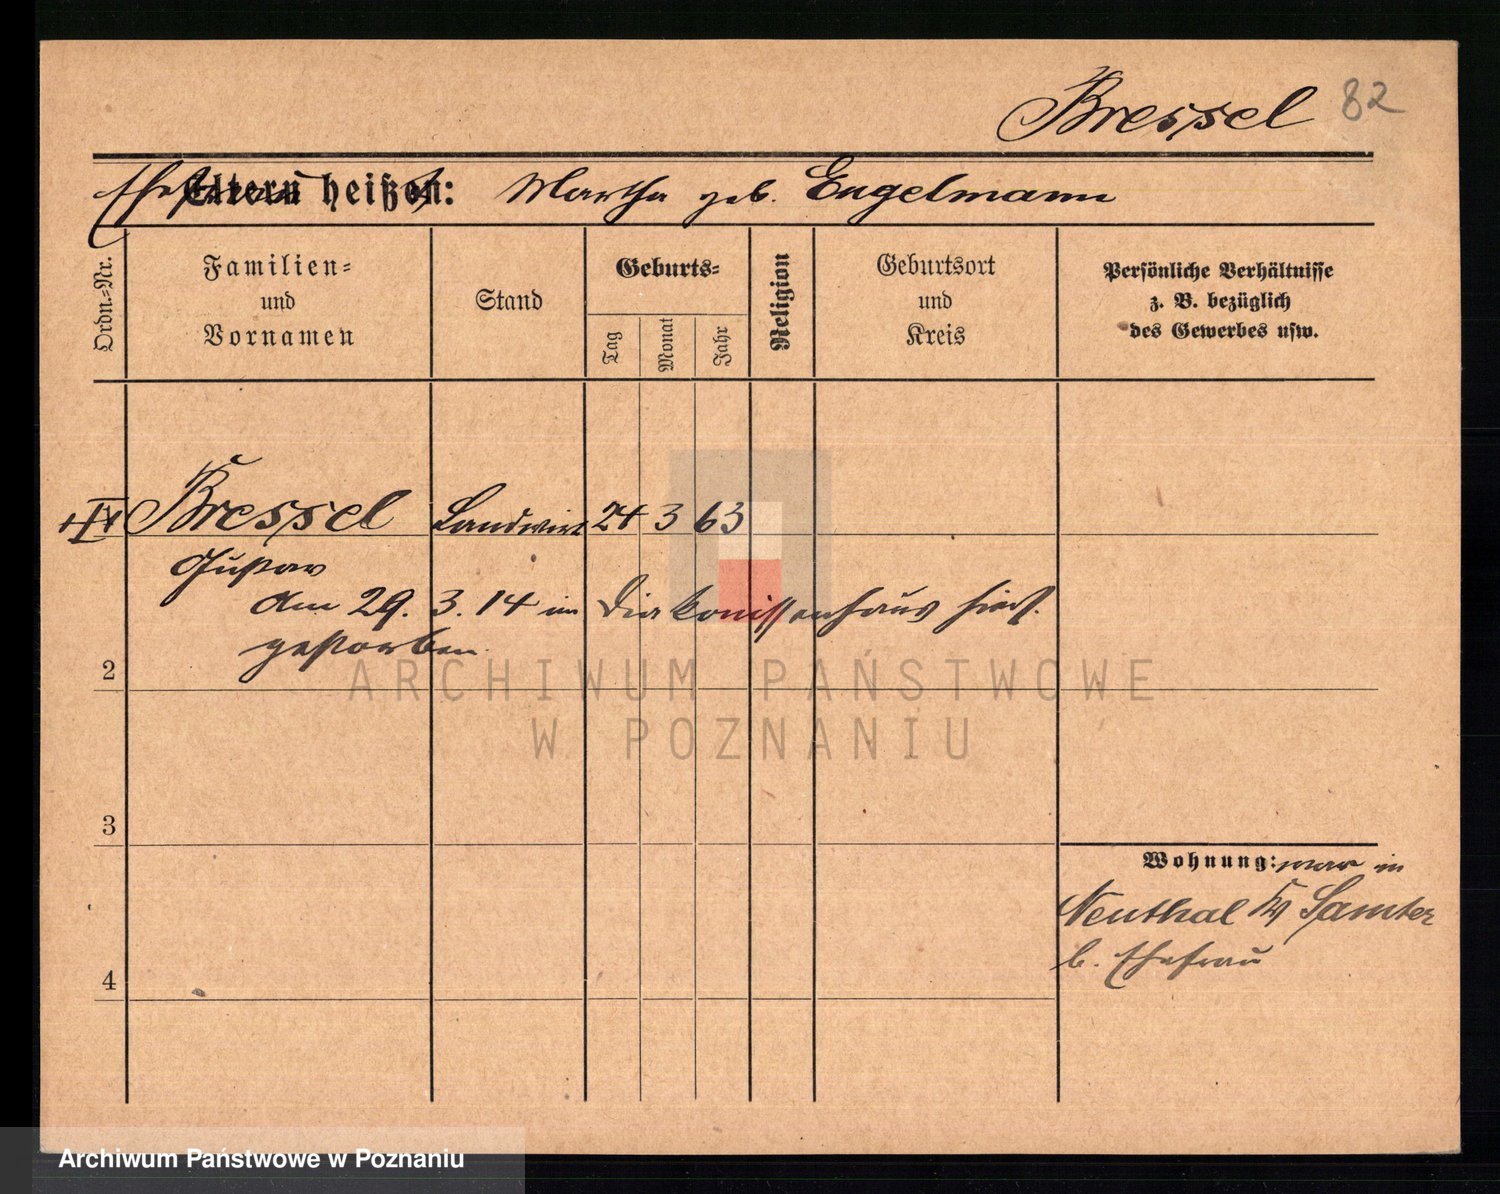 Bressel 82
Eltern heißen: Martha geb. Engelmann
Ordn.-Nr.
Familien-
und
Vornamen
Stand
Geburts-
Tag
Monat
Jahr
Religion
Geburtsort
und
Kreis
Persönliche Verhältnisse
z. B. bezüglich
des Gewerbes usw.
Bressel Landwirt 24 3 63
Gustav
am 29. 3. 14 im Diakonissenhaus hies.
gestorben.
2
ARCHIWUM PAŃSTWOWE
W POZNANIU
3
Wohnung: war in
Neuthal Kr Samter
b. Ehefrau
4
Archiwum Państwowe w Poznaniu